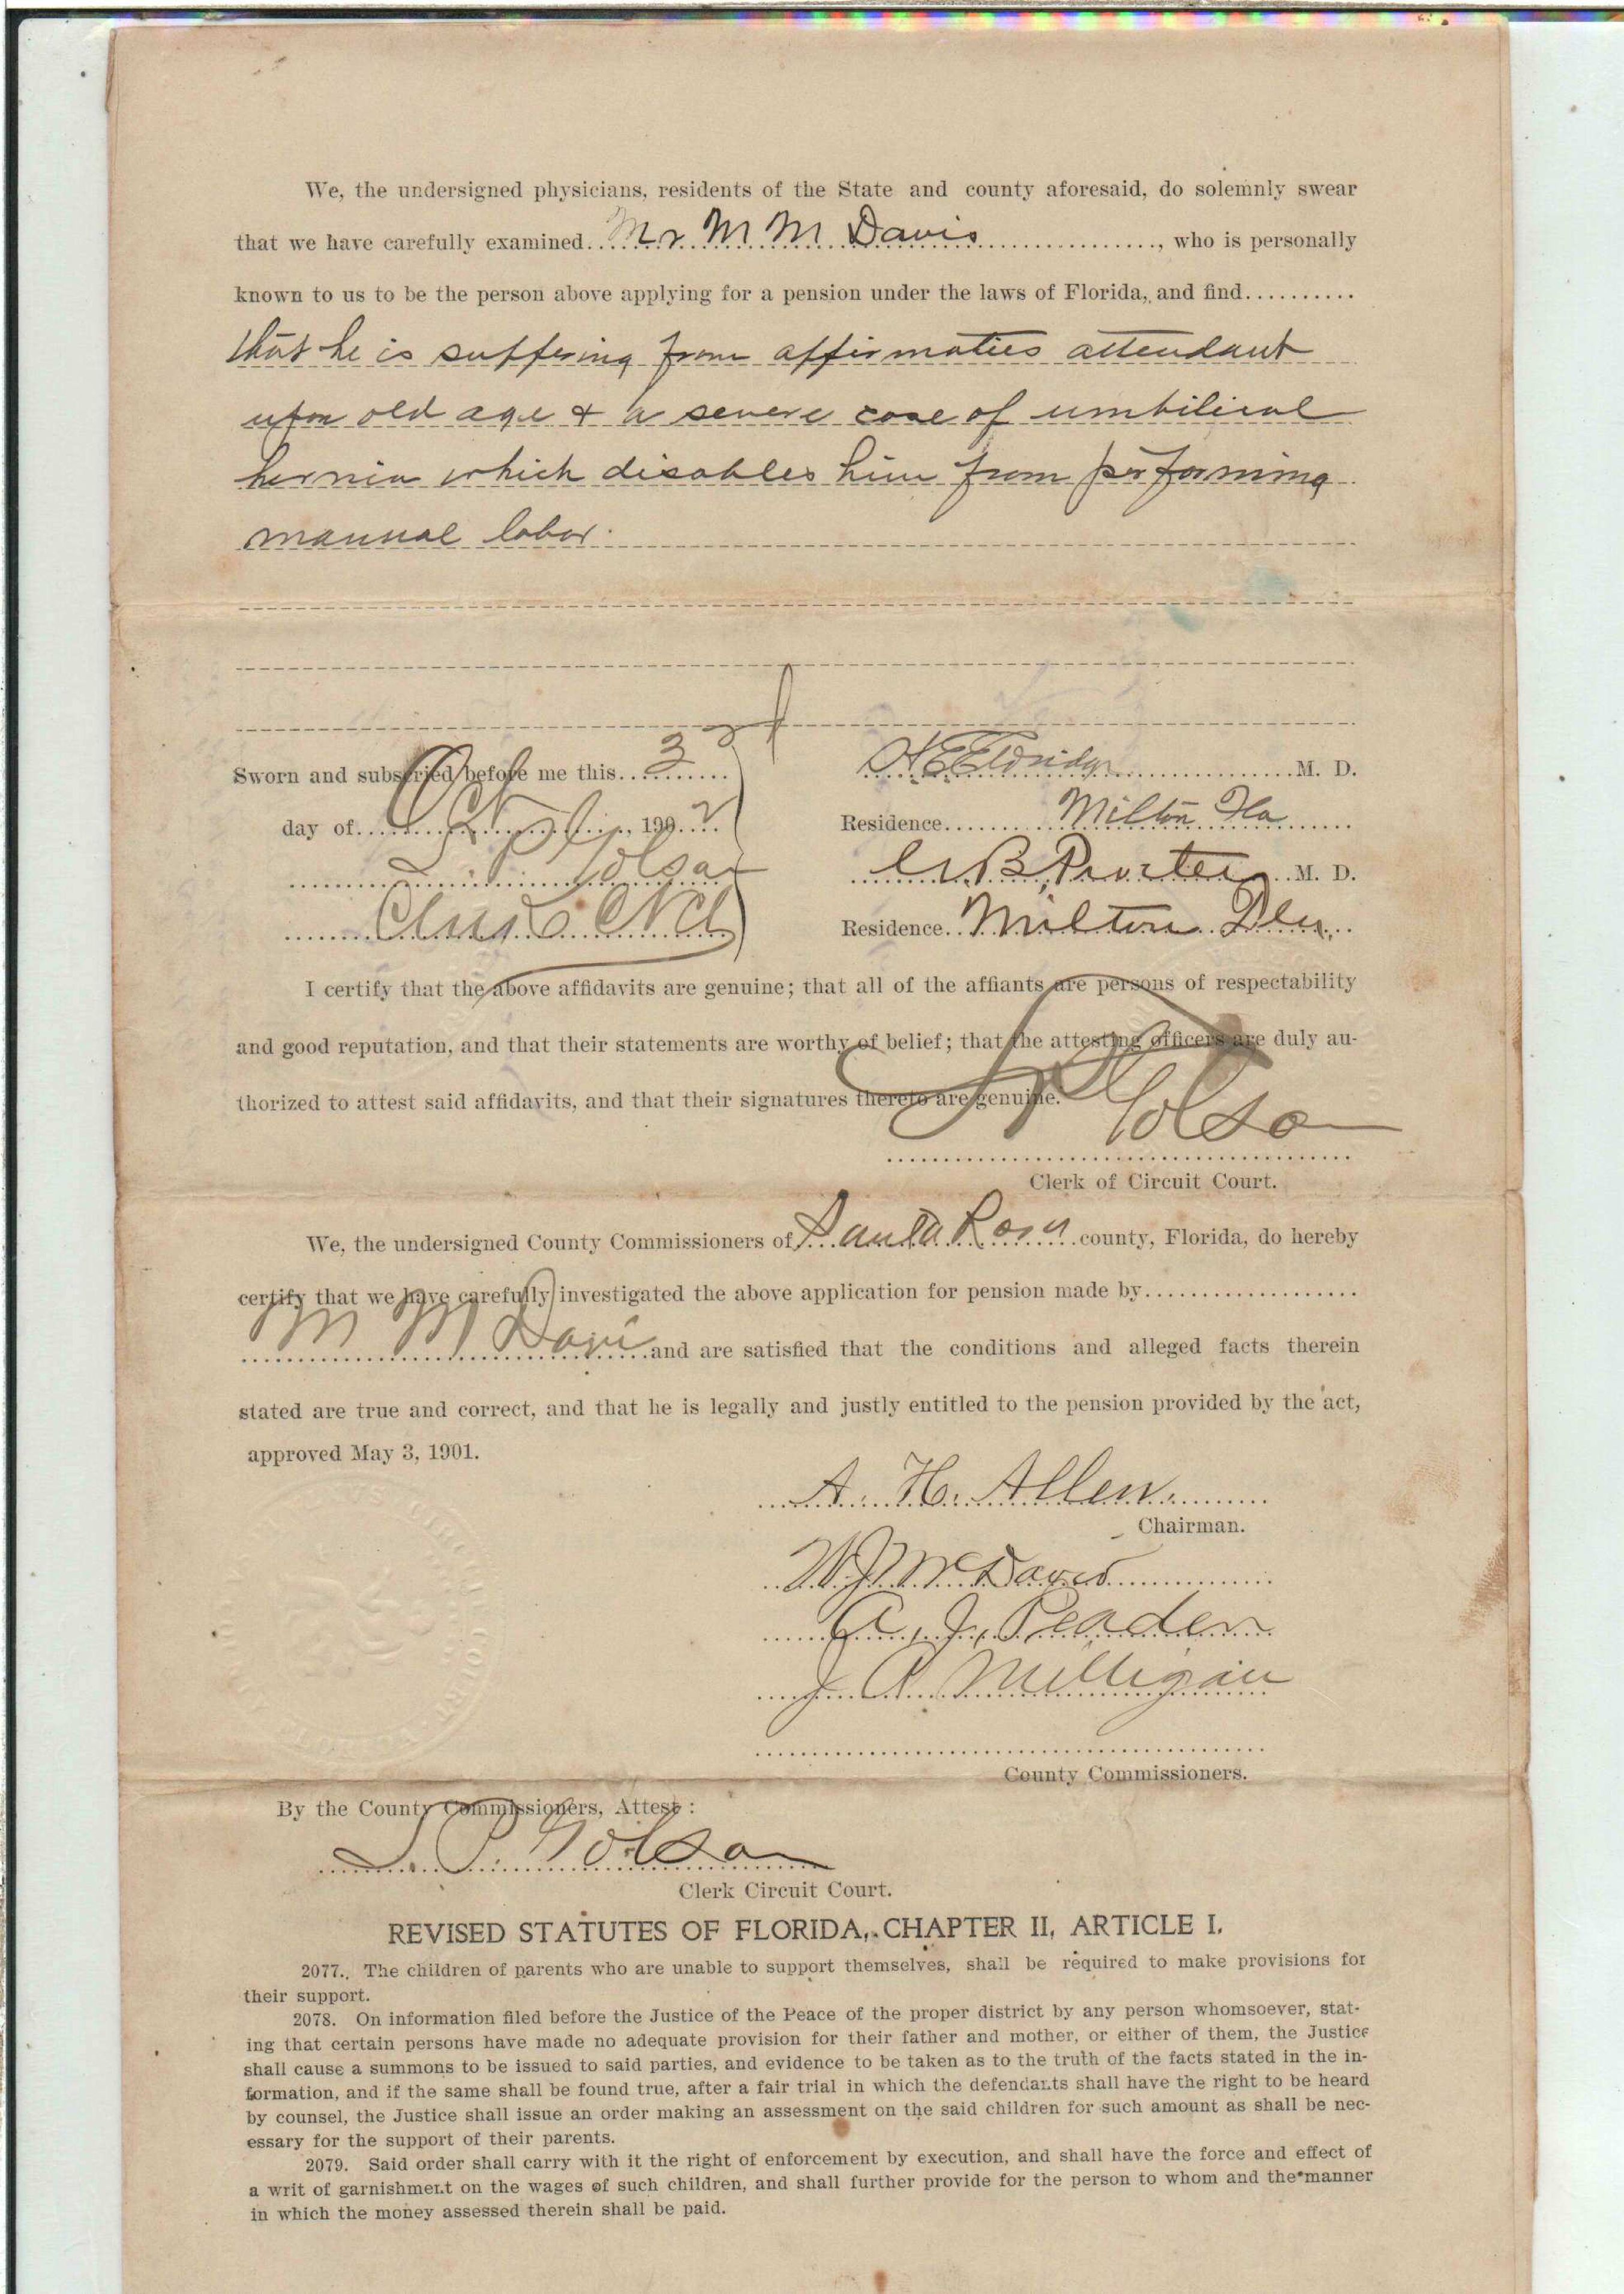 We, the undersigned physicians, residents of the State and county aforesaid, do solemnly swear
that we have carefully examined Mr M M Davis, who is personally
known to us to be the person above applying for a pension under the laws of Florida, and find
that he is suffering from affirmaties attendant
upon old age & a severe case of umbilical
hernia which disables him from performing
manual labor.
Sworn and subscried before me this 3rd
day of Oct, 1902
L. P. Golson
Clerk
H E Eldridge M. D.
Residence Milton Fla
C B Porter M. D.
Residence Milton Fla.
I certify that the above affidavits are genuine; that all of the affiants are persons of respectability
and good reputation, and that their statements are worthy of belief; that the attesting officers are duly au-
thorized to attest said affidavits, and that their signatures thereto are genuine.
Golson
Clerk of Circuit Court.
We, the undersigned County Commissioners of Santa Rosa county, Florida, do hereby
certify that we have carefully investigated the above application for pension made by
M M Davis and are satisfied that the conditions and alleged facts therein
stated are true and correct, and that he is legally and justly entitled to the pension provided by the act,
approved May 3, 1901.
A. H. Allen
Chairman.
W J McDavid
A. J. Peaden
J A Milligan
County Commissioners.
By the County Commissioners, Attest:
L. P. Golson
Clerk Circuit Court.
REVISED STATUTES OF FLORIDA, CHAPTER II, ARTICLE I.
2077. The children of parents who are unable to support themselves, shall be required to make provisions for
their support.
2078. On information filed before the Justice of the Peace of the proper district by any person whomsoever, stat-
ing that certain persons have made no adequate provision for their father and mother, or either of them, the Justice
shall cause a summons to be issued to said parties, and evidence to be taken as to the truth of the facts stated in the in-
formation, and if the same shall be found true, after a fair trial in which the defendants shall have the right to be heard
by counsel, the Justice shall issue an order making an assessment on the said children for such amount as shall be nec-
essary for the support of their parents.
2079. Said order shall carry with it the right of enforcement by execution, and shall have the force and effect of
a writ of garnishment on the wages of such children, and shall further provide for the person to whom and the manner
in which the money assessed therein shall be paid.